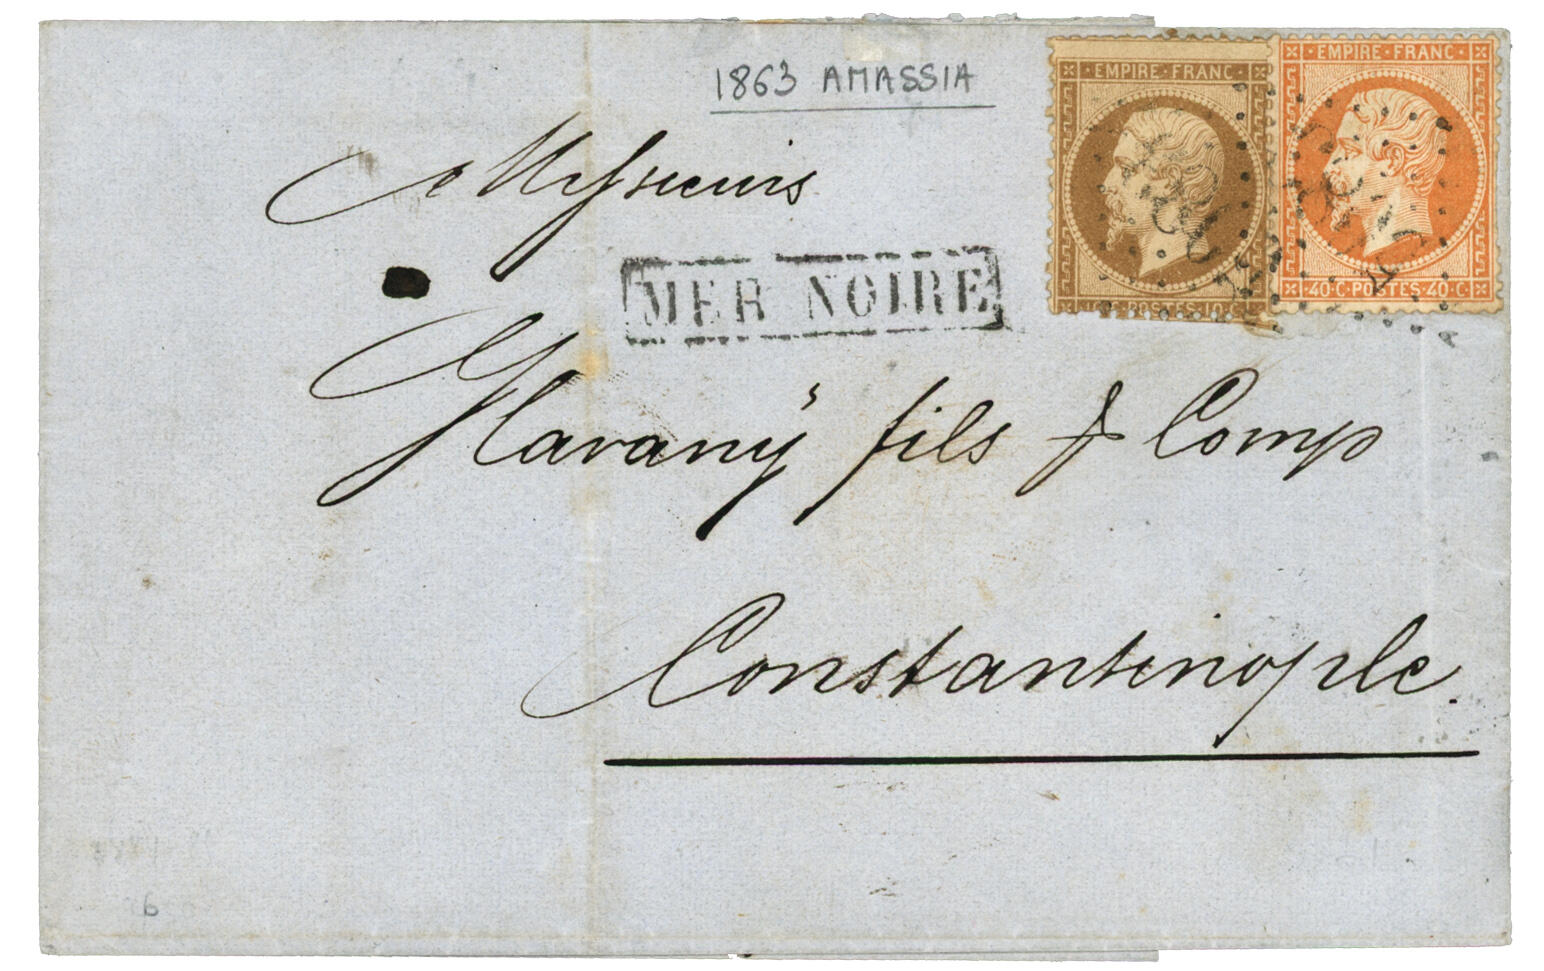 1863 AMASSIA
Messieurs
MER NOIRE
EMPIRE · FRANC
EMPIRE · FRANC
10 C · POSTES · 10 C
40 C · POSTES · 40 C
Glavanÿ fils & Comp
Constantinople.
6